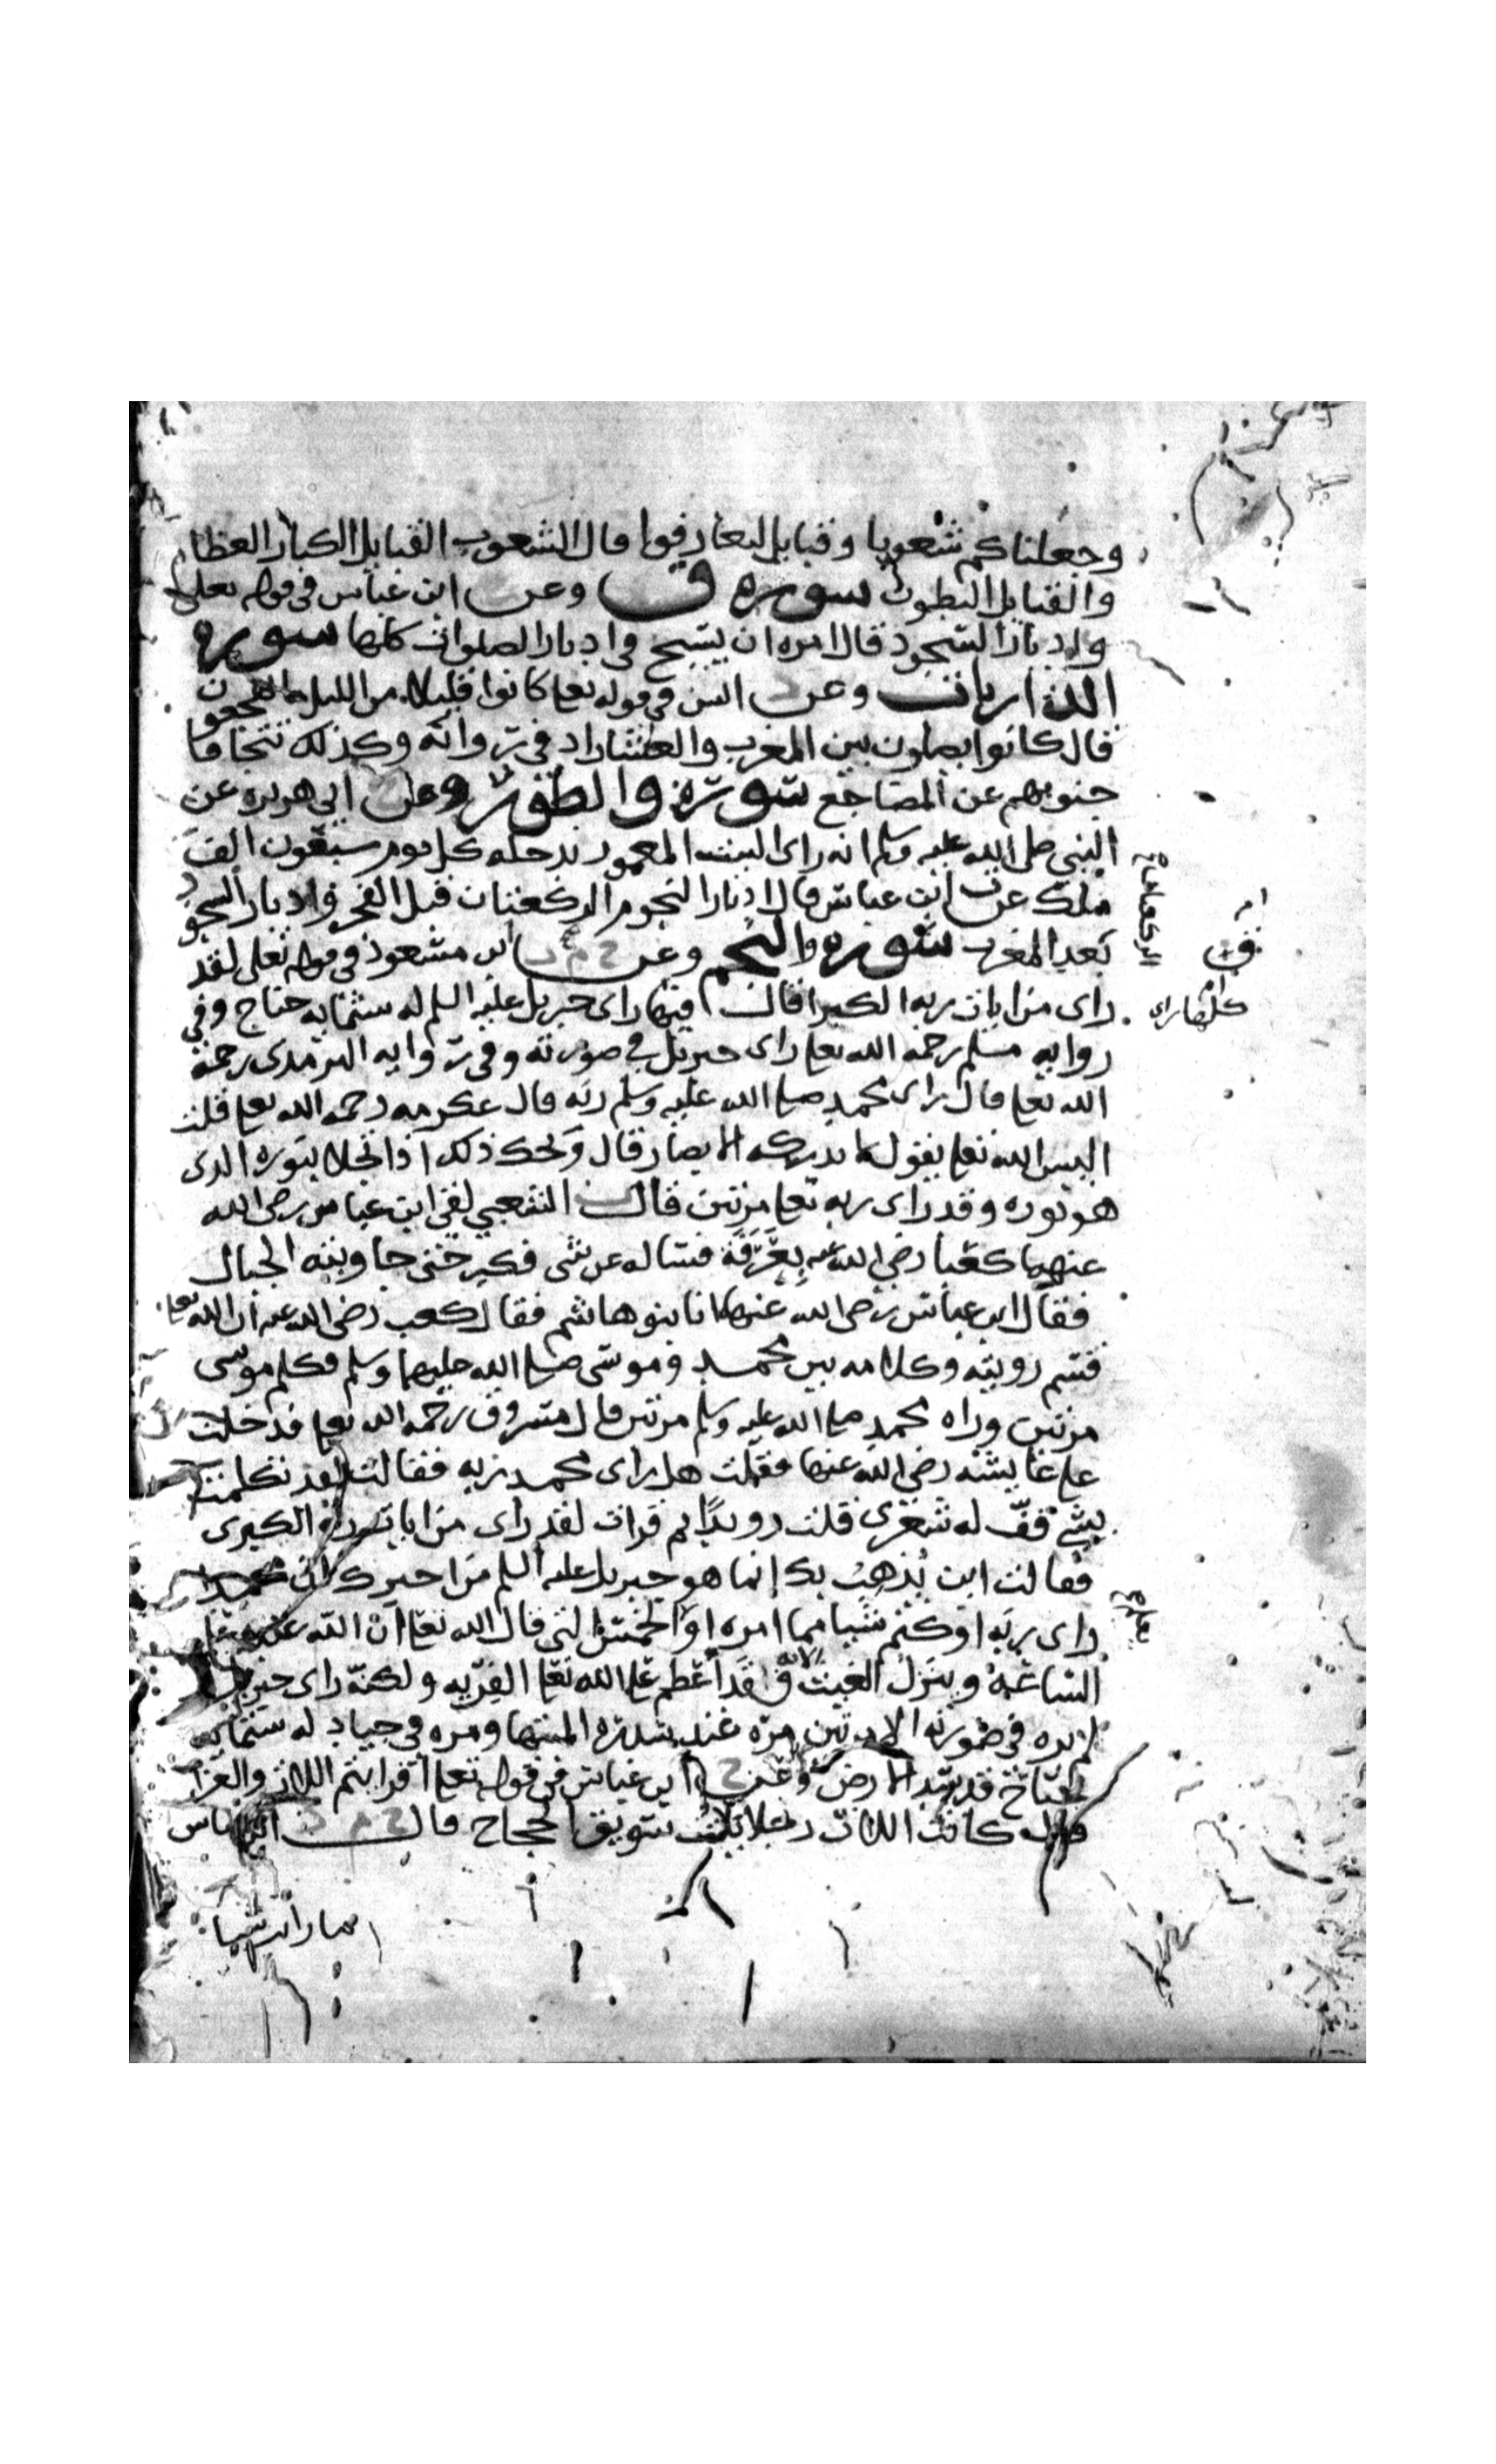 وجعلناكم شعوبا وقبايل لتعارفوا قال الشعوب القبايل الكبار العظام
والقبايل البطون سوره ق وعن ابن عباس في قوله تعلى
وادبار السجود قال امره ان يسبح في ادبار الصلوات كلها سوره
الذاريات وعن انس في قوله تعلى كانوا قليلا من الليل ما يهجعون
قال كانوا يصلون بين المغرب والعشا زاد في روايه وكذلك تتجافا
جنوبهم عن المضاجع سورة والطور وعن ابي هريره عن
النبي صلى الله عليه وسلم انه راى البيت المعمور يدخله كل يوم سبعون الف
ملك عن ابن عباس قال ادبار النجوم الركعتان قبل الفجر وادبار السجود
بعد المغرب سوره والنجم وعن ابن مسعود في قوله تعلى لقد
راى من ايات ربه الكبرا قال فيها راى جبريل عليه السلم له ستمايه جناح وفي
روايه مسلم رحمه الله تعلى راى جبريل في صورته وفي روايه الترمدى رحمه
الله تعلى قال راى محمد صلى الله عليه وسلم ربه قال عكرمه رحمه الله تعلى قلت
اليس الله تعلى يقول لا تدركه الابصار قال ويحك ذلك اذا تجلا بنوره الذى
هو نوره وقد راى ربه تعلى مرتين قال الشعبي لقي ابن عباس رضى الله
عنهما كعبا رضي الله عنه بعرفة فساله عن شى فكبر حتى جاوبته الجبال
فقال ابن عباس رضى الله عنهما انا بنو هاشم فقال كعب رضى الله عنه ان الله تعلى
قسم رويته وكلامه بين محمد وموسى صلى الله عليهما وسلم فكلم موسى
مرتين وراه محمد صلى الله عليه وسلم مرتين قال مسروق رحمه الله تعلى فدخلت
على عايشه رضي الله عنها فقلت هل راى محمد ربه فقالت لقد تكلمت
بشي قف له شعرى قلت رويدا ثم قرات لقد راى من ايات ربه الكبرى
فقالت اين يذهب بك إنما هو جبريل عليه السلم من اخبرك ان محمدا
راى ربه او كتم شيا مما امره او الخمس التي قال الله تعلى ان الله عنده علم
الساعة وينزل الغيث الايه فقد اعظم على الله تعلى الفريه ولكنه راى جبريل
لم يره في صورته الا مرتين مرة عند سدرة المنتها ومره في جياد له ستمايه
جناح قد سد الارض وعن ابن عباس في قوله تعلى افرايتم اللات والعزا
قال كانت اللات رجلا يلت سويق الحجاج قال ابن عباس
ما رايت شيا